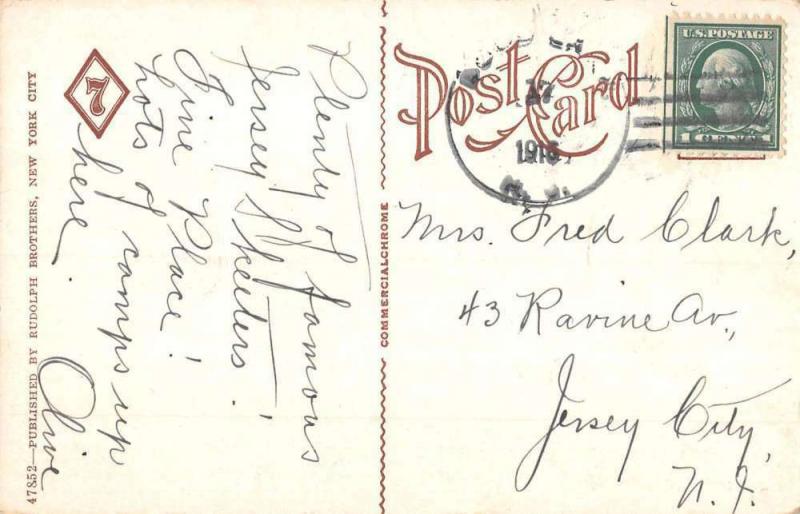 Plenty of famous
Jersey Skeeters!
Fine Place!
Lots of camps up
here.
Olive
7
47852—PUBLISHED BY RUDOLPH BROTHERS, NEW YORK CITY
COMMERCIALCHROME
Post Card
17
1916
N. J.
U.S. POSTAGE
1 CENT 1
Mrs. Fred Clark,
43 Ravine Av.,
Jersey City,
N. J.